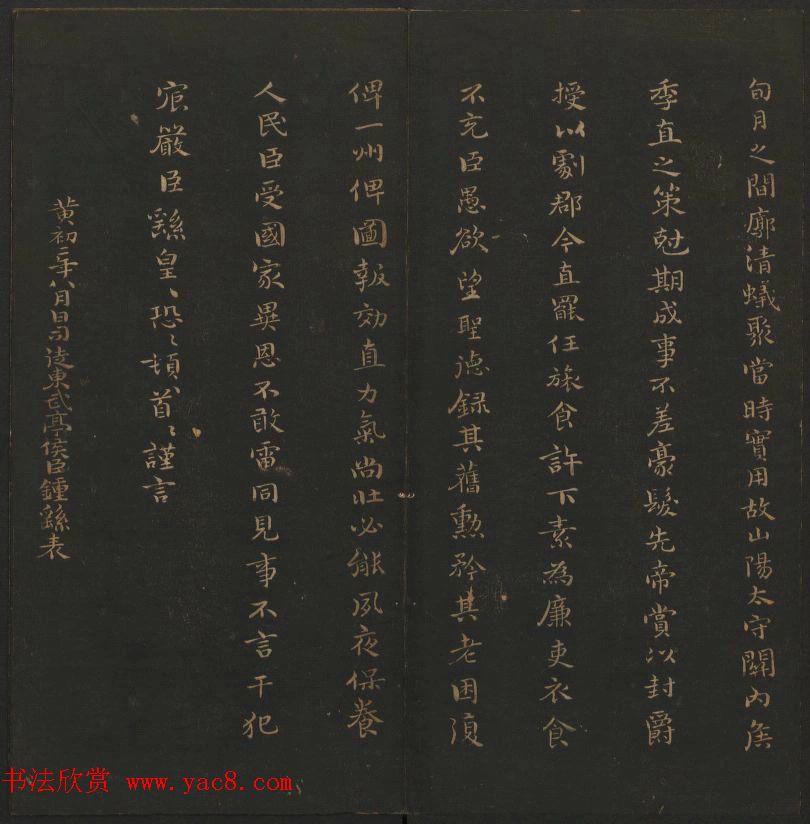 旬月之間廓清蟻聚當時實用故山陽太守關內侯
季直之策尅期成事不差豪髮先帝賞以封爵
授以劇郡今直罷任旅食許下素為廉吏衣食
不充臣愚欲望聖德録其舊勳矜其老困復
俾一州俾圖報効直力氣尚壯必能夙夜保養
人民臣受國家異恩不敢雷同見事不言干犯
宸嚴臣繇皇〻恐〻頓〻首〻謹言
黃初二年八月日司徒東武亭侯臣鍾繇表
书法欣赏 www.yac8.com